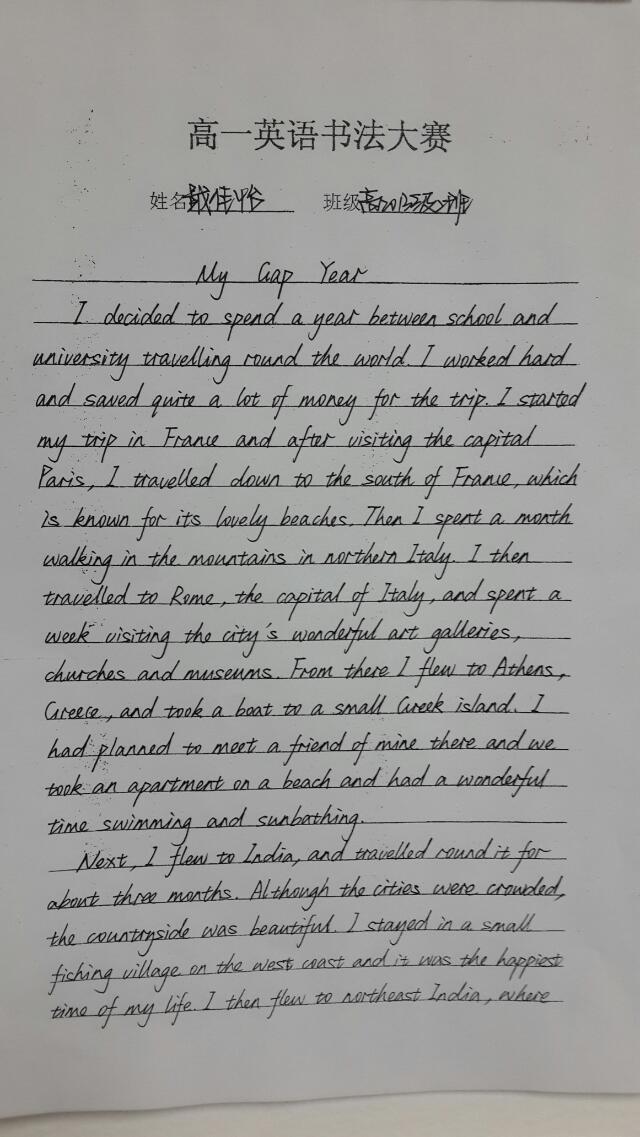 高一英语书法大赛
姓名 戴佳怡 班级
My Gap Year
I decided to spend a year between school and
university travelling round the world. I worked hard
and saved quite a lot of money for the trip. I started
my trip in France and after visiting the capital
Paris, I travelled down to the south of France, which
is known for its lovely beaches. Then I spent a month
walking in the mountains in northern Italy. I then
travelled to Rome, the capital of Italy, and spent a
week visiting the city's wonderful art galleries,
churches and museums. From there I flew to Athens,
Greece, and took a boat to a small Greek island. I
had planned to meet a friend of mine there and we
took an apartment on a beach and had a wonderful
time swimming and sunbathing.
Next, I flew to India, and travelled round it for
about three months. Although the cities were crowded,
the countryside was beautiful. I stayed in a small
fishing village on the west coast and it was the happiest
time of my life. I then flew to northeast India, where